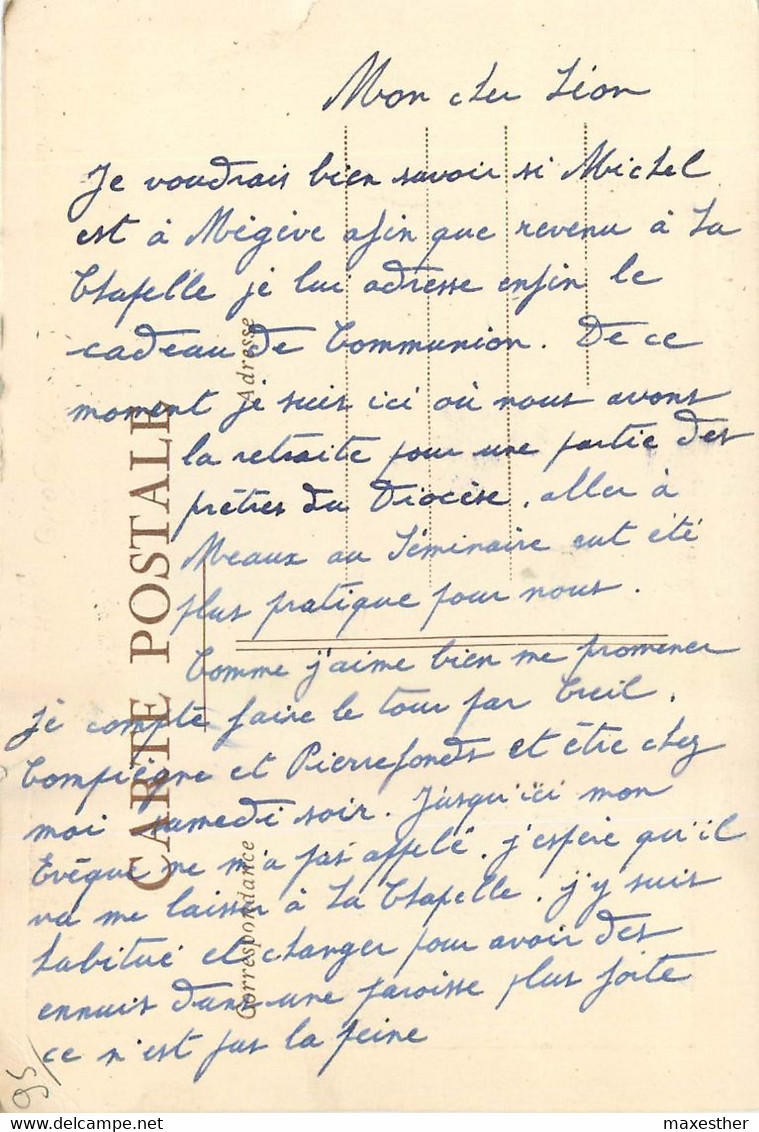 Mon cher Léon
Je voudrais bien savoir si Michel
est à Mégève afin que revenu à La
Chapelle je lui adresse enfin le
cadeau de Communion. De ce
moment je suis ici où nous avons
la retraite pour une partie des
prêtres du Diocèse, aller à
Meaux au Séminaire eut été
plus pratique pour nous.
Comme j'aime bien me promener
je compte faire le tour par Creil,
Compiègne et Pierrefonds et être chez
moi samedi soir. Jusqu'ici mon
Evêque ne m'a pas appelé, j'espère qu'il
va me laisser à La Chapelle, j'y suis
habitué et changer pour avoir des
ennuis dans une paroisse plus forte
ce n'est pas la peine
CARTE POSTALE
Correspondance
Adresse
95
Delcampe.net
maxesther